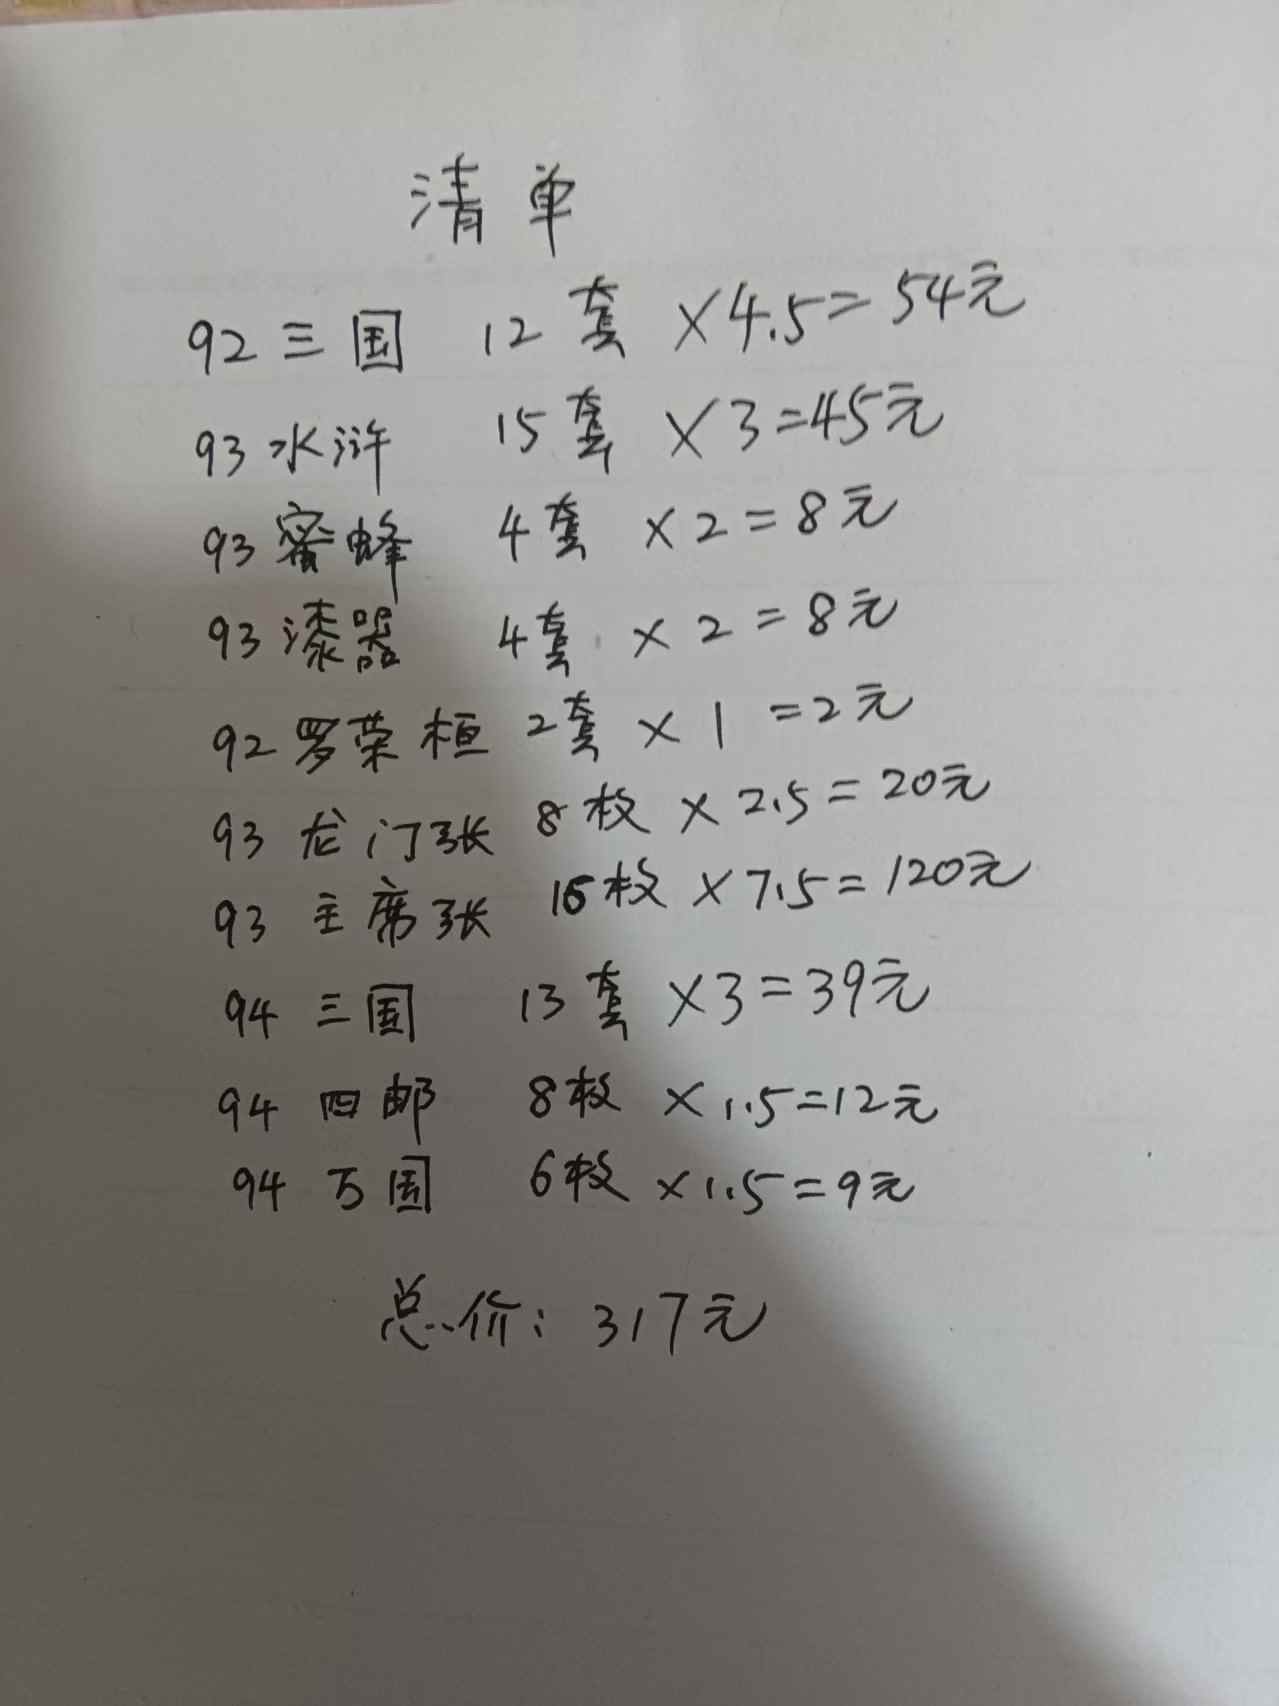 清单
92三国 12套 ×4.5=54元
93水浒 15套 ×3=45元
93蜜蜂 4套 ×2=8元
93漆器 4套 ×2=8元
92罗荣桓 2套 ×1=2元
93龙门张 8枚 ×2.5=20元
93主席张 16枚 ×7.5=120元
94三国 13套 ×3=39元
94四邮 8枚 ×1.5=12元
94万国 6枚 ×1.5=9元
总价：317元